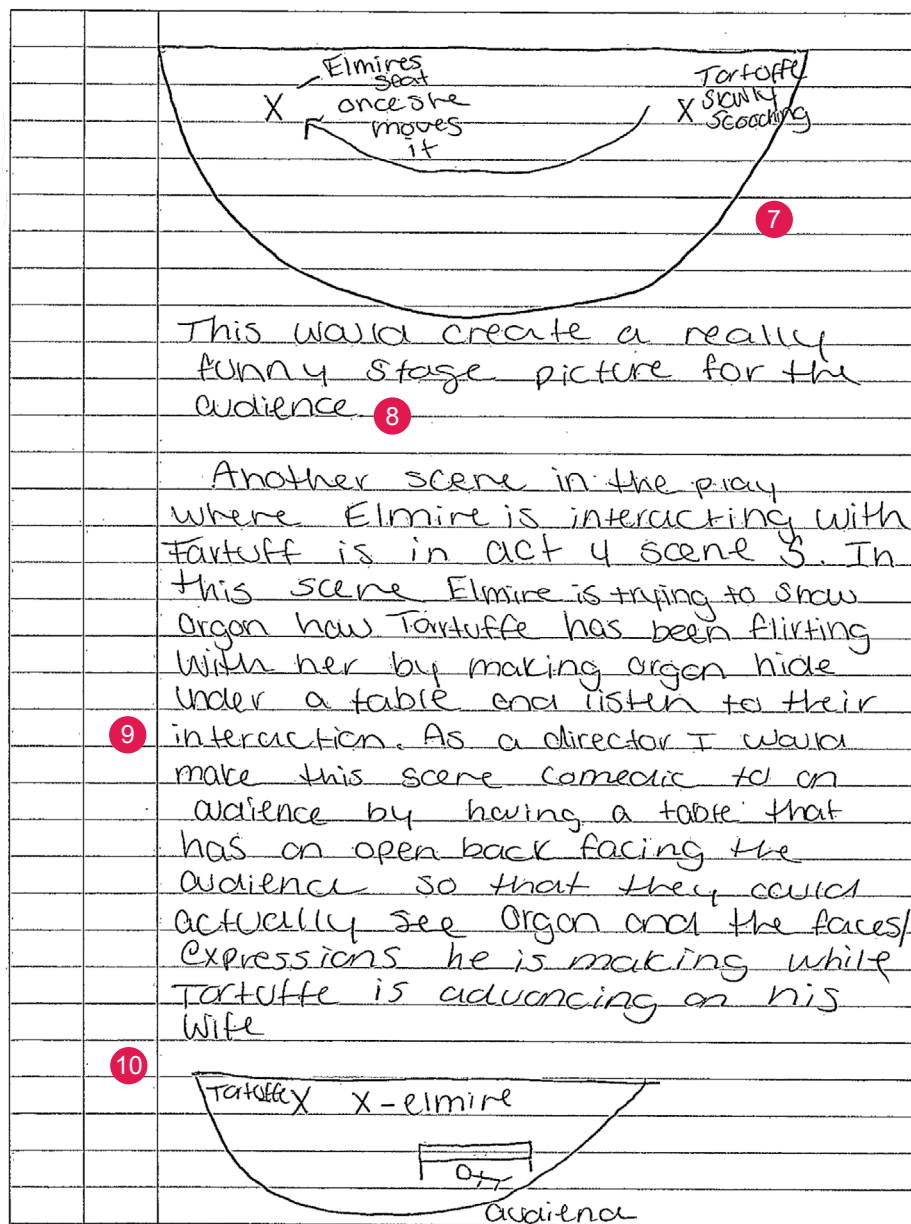 Elmires
seat
once she
moves
it
X
Tartuffe
X slowly
scooching
7
This would create a really
funny stage picture for the
audience.
8
Another scene in the play
where Elmire is interacting with
Tartuff is in act 4 scene 5. In
this scene Elmire is trying to show
Orgon how Tartuffe has been flirting
with her by making orgon hide
under a table and listen to their
9
interaction. As a director I would
make this scene comedic to an
audience by having a table that
has an open back facing the
audience so that they could
actually see Orgon and the faces/
expressions he is making while
Tartuffe is advancing on his
wife
10
Tartuffe X X - elmire
audience